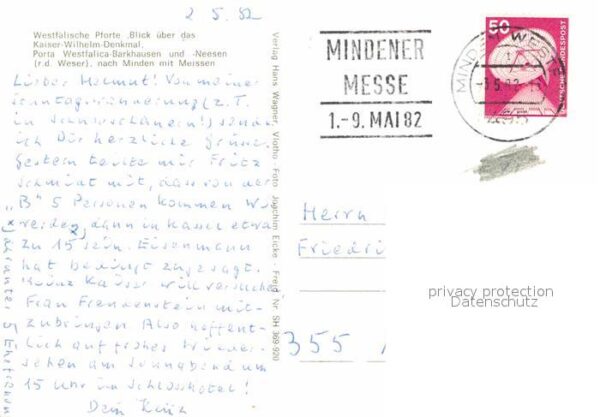 2.5.82
Westfälische Pforte, Blick über das
Kaiser-Wilhelm-Denkmal,
Porta Westfalica-Barkhausen und -Neesen
(r.d. Weser), nach Minden mit Meissen
Lieber Helmut! Von meiner
Sonntagswanderung (z.T.
in Schneeschauern!) sende
ich Dir herzliche Grüsse.
Gestern teilte mir Fritz
Schmidt mit, dass von der
"B" 5 Personen kommen
dann in Kassel etwa
zu 15 sein. Eisenmann
hat bedingt zugesagt.
Heinz will versuchen
Frau Frankenstein mit-
zubringen. Also hoffent-
lich auf frohes Wieder-
sehen am Sonnabend um
15 Uhr im Schlosshotel!
Dein
darunter 5 Ehefrauen
Verlag Hans Wagner, Vlotho · Foto Joachim Eicke · Freig. Nr. SH 369 920
MINDENER
MESSE
1.-9. MAI 82
MINDEN, WESTF
50
DEUTSCHE BUNDESPOST
Herrn
Friedri
355
privacy protection
Datenschutz